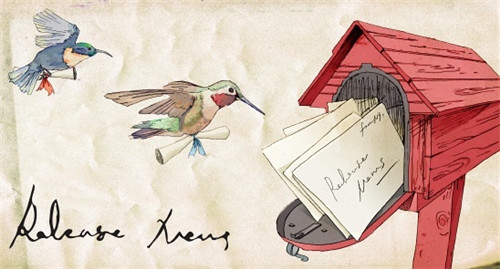 Release News
Release
News